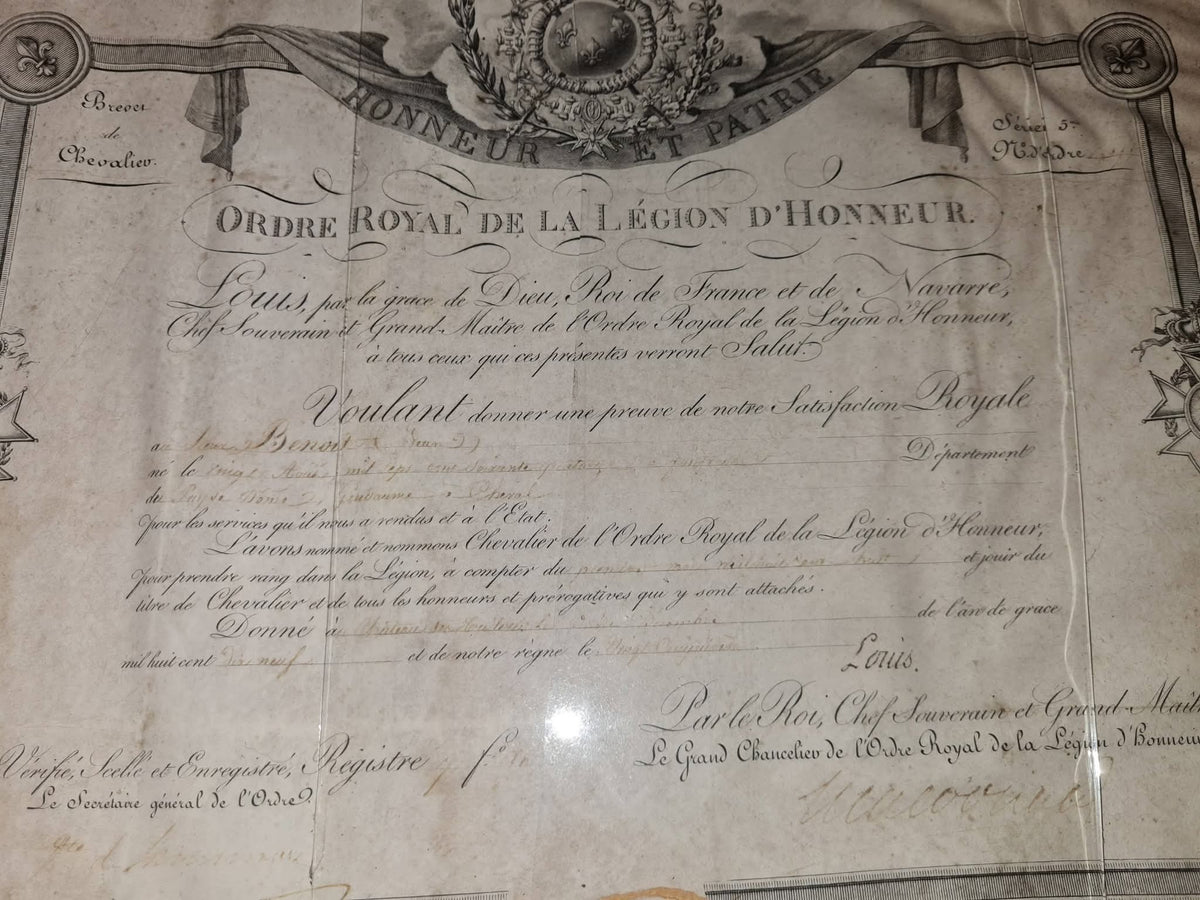 HONNEUR ET PATRIE
Brevet
de
Chevalier.
Série 5e
N° d'Ordre
ORDRE ROYAL DE LA LÉGION D'HONNEUR.
Louis, par la grace de Dieu, Roi de France et de Navarre,
Chef Souverain et Grand-Maître de l'Ordre Royal de la Légion d'Honneur,
à tous ceux qui ces présentes verront Salut.
Voulant donner une preuve de notre Satisfaction Royale
au Sieur Benoit (Jean)
né le vingt Aout mil sept cent soixante quatorze à Département
du Puy de Dôme, gendarme à Cheval
pour les services qu'il nous a rendus et à l'Etat;
L'avons nommé et nommons Chevalier de l'Ordre Royal de la Légion d'Honneur,
pour prendre rang dans la Légion, à compter du mil huit cent et jouir du
titre de Chevalier et de tous les honneurs et prérogatives qui y sont attachés.
Donné au Château des Tuileries le de l'an de grace
mil huit cent dix neuf et de notre règne le Vingt Cinquième
Louis.
Par le Roi, Chef Souverain et Grand-Maît
Le Grand Chancelier de l'Ordre Royal de la Légion d'Honneur
Vérifié, Scellé et Enregistré, Régistre fo
Le Secrétaire général de l'Ordre